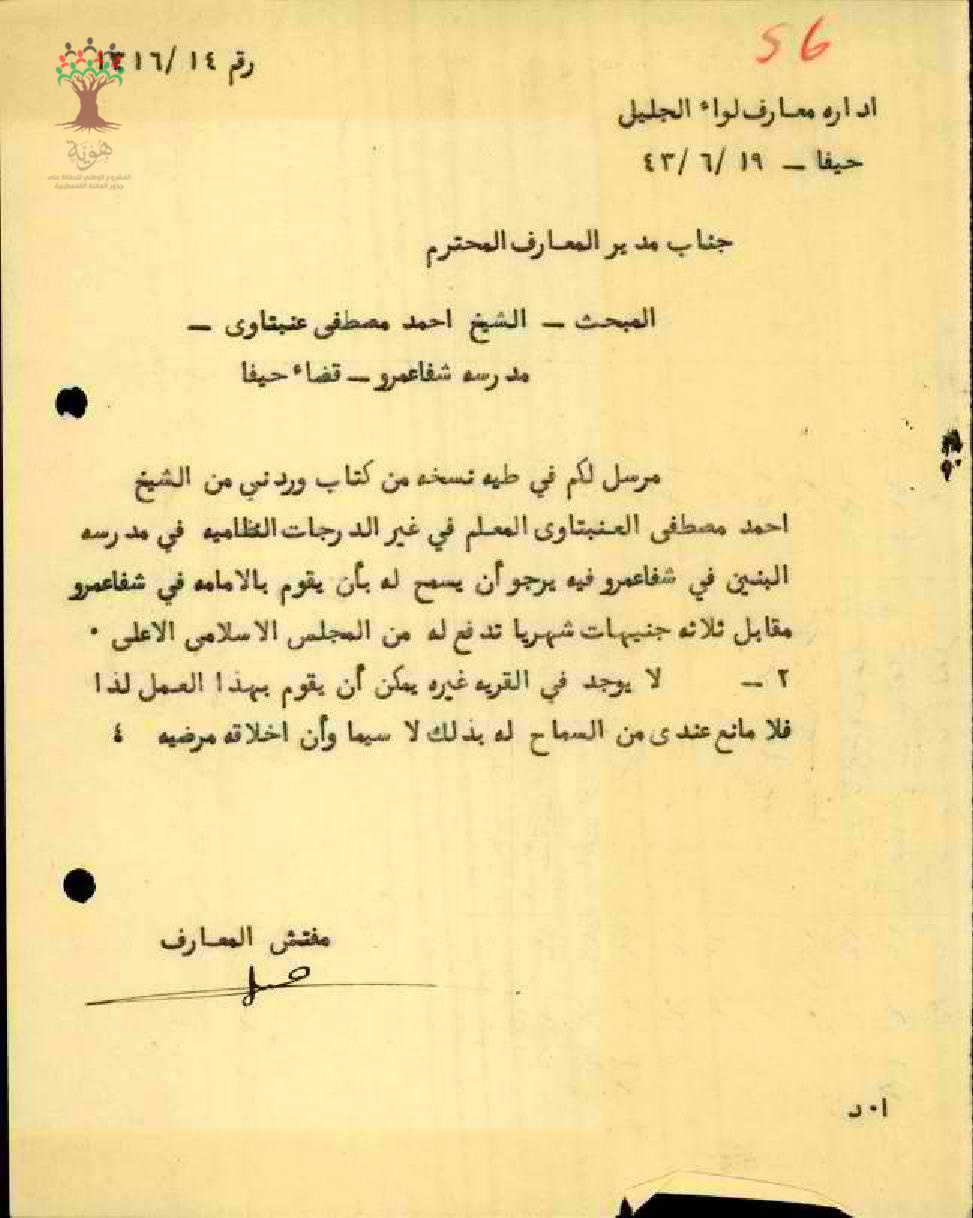 56
رقم ١٤ /١٣١٦
هوية
المشروع الوطني للحفاظ على
جذور العائلة الفلسطينية
اداره معارف لواء الجليل
حيفا – ١٩ /٦ /٤٣
جناب مدير المعارف المحترم
المبحث – الشيخ احمد مصطفى عنبتاوى –
مدرسه شفاعمرو – قضاء حيفا
مرسل لكم في طيه نسخه من كتاب وردني من الشيخ
احمد مصطفى العنبتاوى المعلم في غير الدرجات النظاميه في مدرسه
البنين في شفاعمرو فيه يرجو أن يسمح له بأن يقوم بالامامه في شفاعمرو
مقابل ثلاثه جنيهات شهريا تدفع له من المجلس الاسلامى الاعلى ٠
٢ – لا يوجد في القريه غيره يمكن أن يقوم بهذا العمل لذا
فلا مانع عندى من السماح له بذلك لا سيما وأن اخلاقه مرضيه ٤
مفتش المعارف
ا٠ د